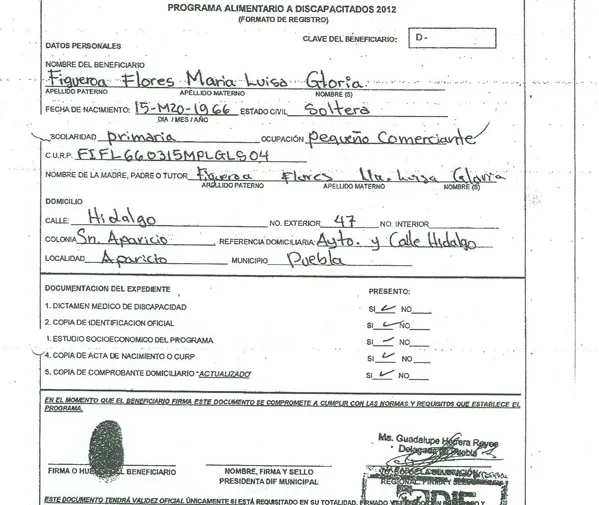 PROGRAMA ALIMENTARIO A DISCAPACITADOS 2012
(FORMATO DE REGISTRO)
CLAVE DEL BENEFICIARIO: D-
DATOS PERSONALES
NOMBRE DEL BENEFICIARIO
Figueroa Flores Maria Luisa Gloria
APELLIDO PATERNO APELLIDO MATERNO NOMBRE (S)
FECHA DE NACIMIENTO: 15-MZO-1966 ESTADO CIVIL Soltera
DIA / MES / AÑO
ESCOLARIDAD primaria OCUPACIÓN pequeño Comerciante
C.U.R.P. FIFL660315MPLGLS04
NOMBRE DE LA MADRE, PADRE O TUTOR Figueroa Flores Ma. Luisa Gloria
APELLIDO PATERNO APELLIDO MATERNO NOMBRE (S)
DOMICILIO
CALLE: Hidalgo NO. EXTERIOR 47 NO. INTERIOR
COLONIA Sn. Aparicio REFERENCIA DOMICILIARIA: Ayto. y Calle Hidalgo
LOCALIDAD Aparicio MUNICIPIO Puebla
DOCUMENTACION DEL EXPEDIENTE PRESENTO:
1. DICTAMEN MEDICO DE DISCAPACIDAD SI NO
2. COPIA DE IDENTIFICACION OFICIAL SI NO
1. ESTUDIO SOCIOECONOMICO DEL PROGRAMA SI NO
4. COPIA DE ACTA DE NACIMIENTO O CURP SI NO
5. COPIA DE COMPROBANTE DOMICILIARIO "ACTUALIZADO" SI NO
EN EL MOMENTO QUE EL BENEFICIARIO FIRMA ESTE DOCUMENTO SE COMPROMETE A CUMPLIR CON LAS NORMAS Y REQUISITOS QUE ESTABLECE EL
PROGRAMA.
Ma. Guadalupe Herrera Reyes
Delegada Puebla
FIRMA O BENEFICIARIO NOMBRE, FIRMA Y SELLO
PRESIDENTA DIF MUNICIPAL REGIONAL FIRMA Y
DIF
ESTE DOCUMENTO TENDRÁ VALIDEZ OFICIAL ÚNICAMENTE SI ESTÁ REQUISITADO EN SU TOTALIDAD, FIRMADO